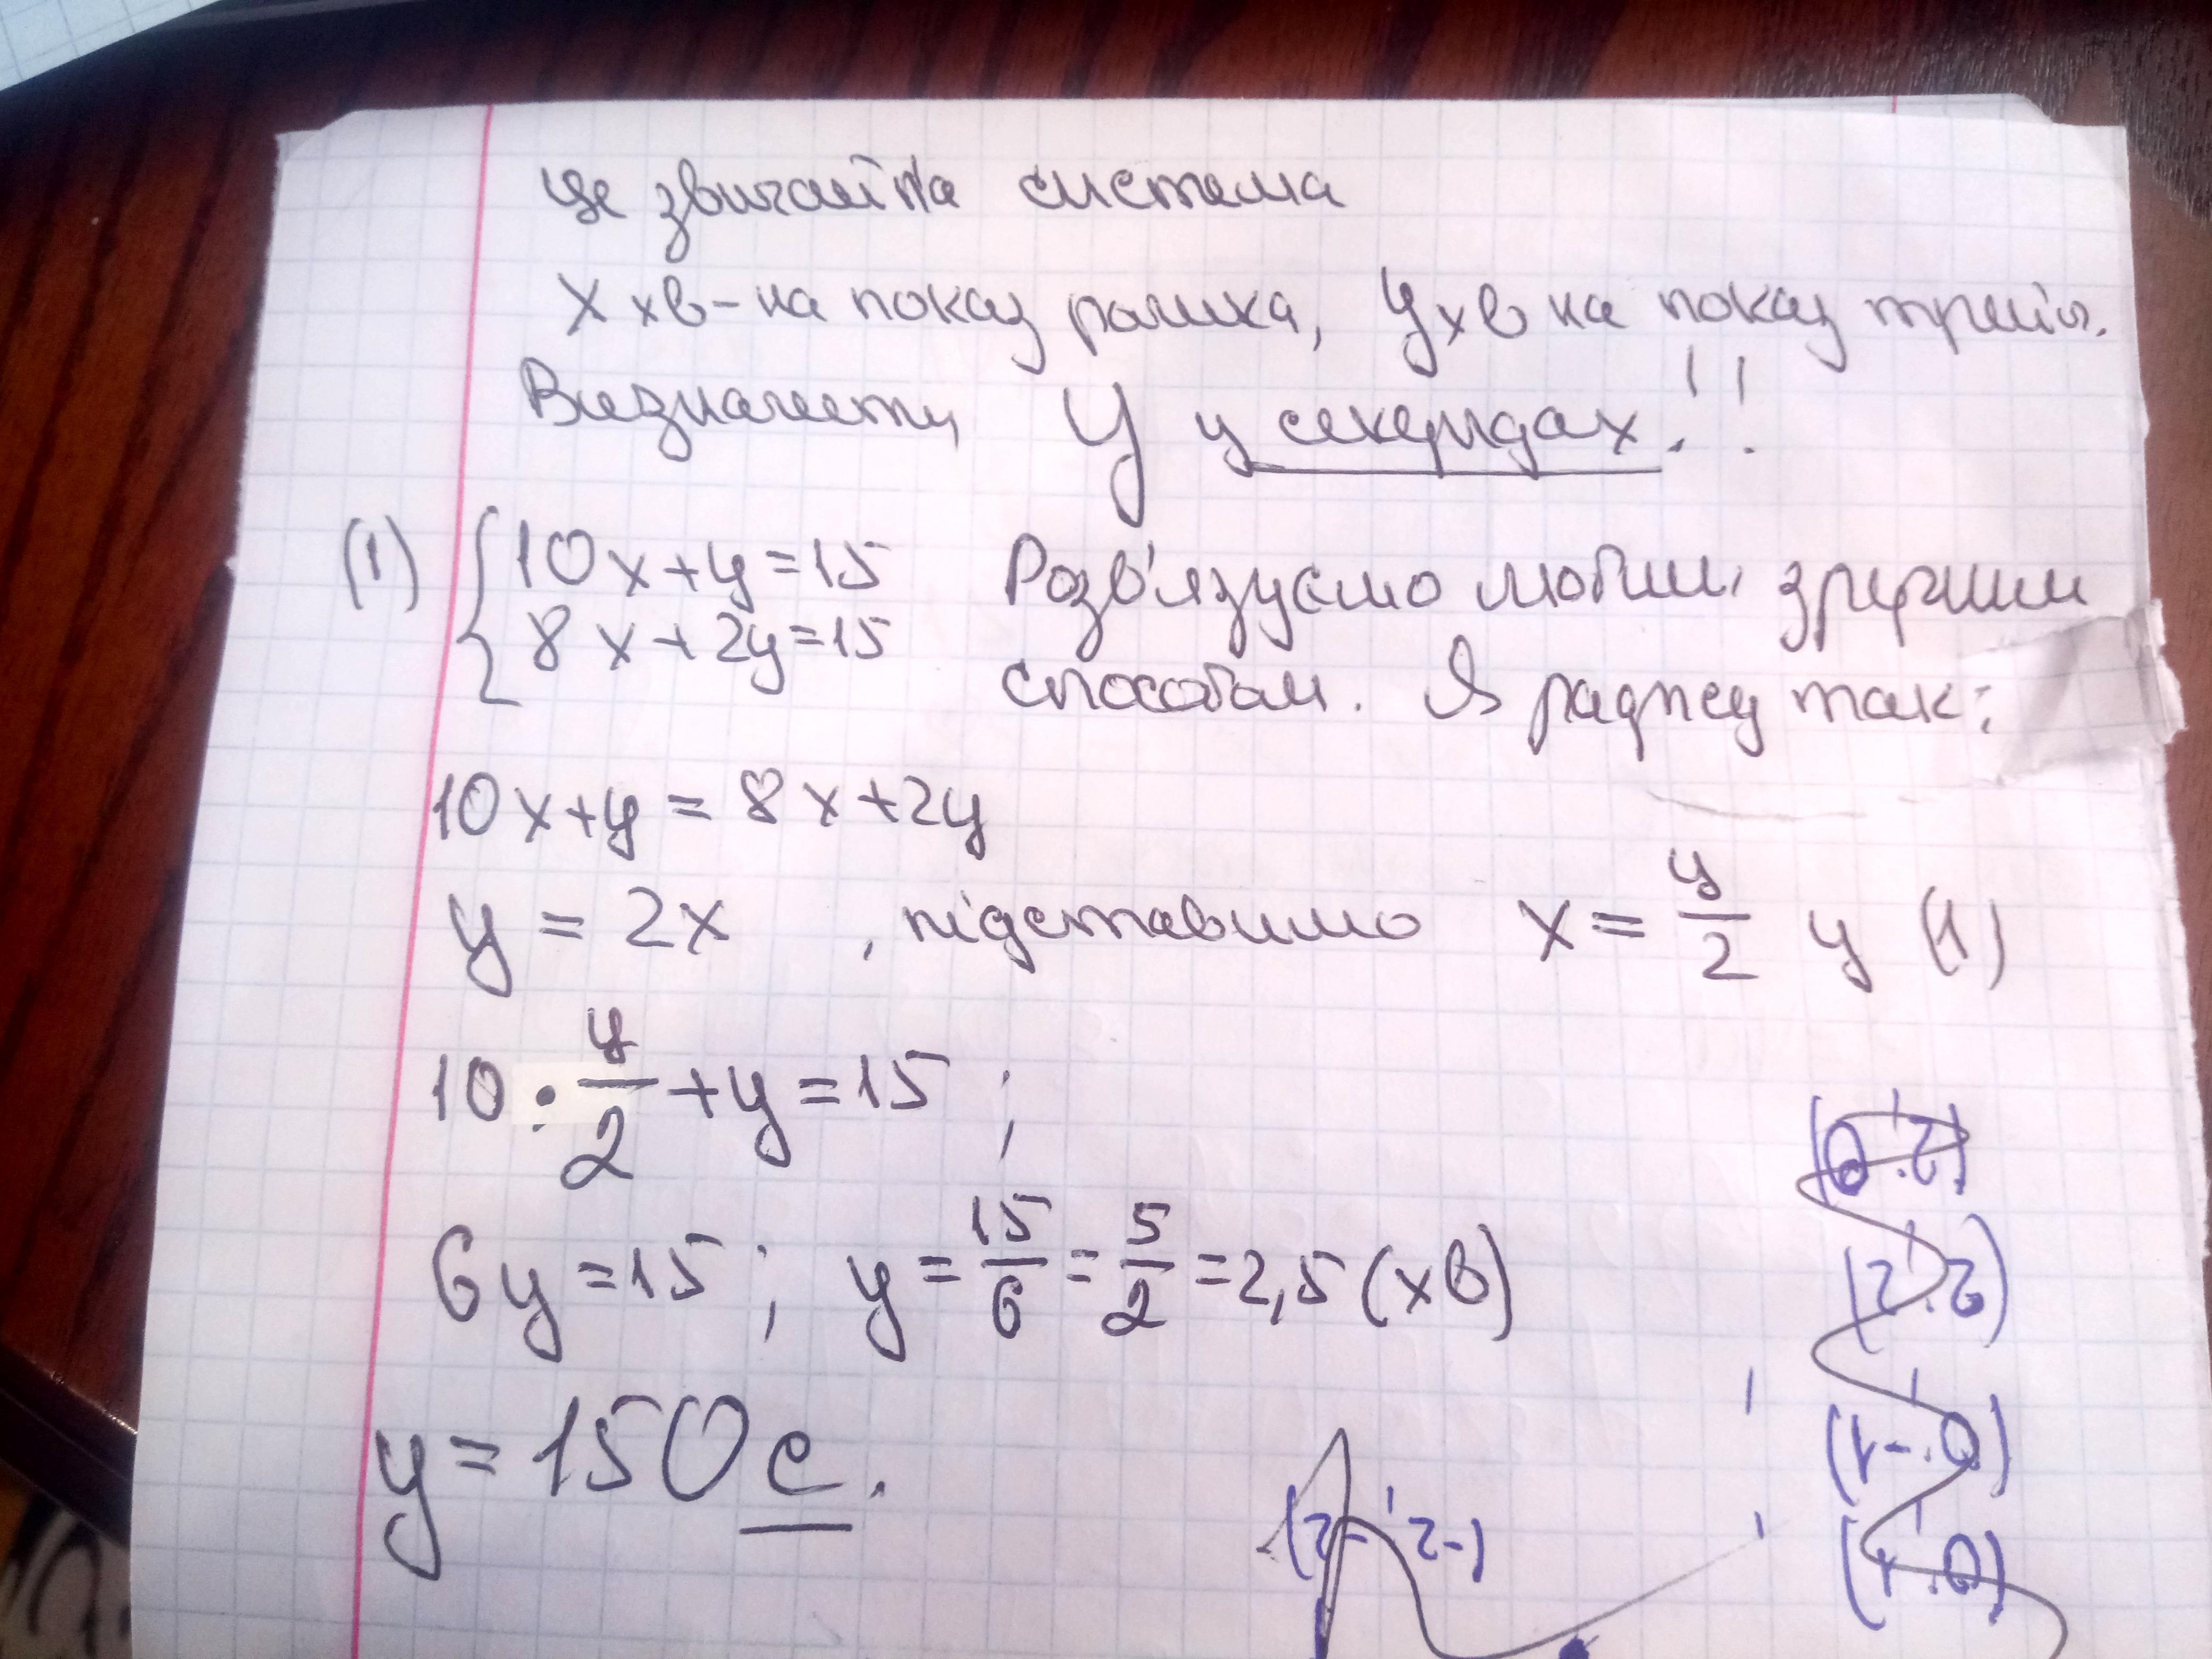 це звичайна система
X хв - на показ ролика, y хв на показ трейл.
Визначити y у секундах!!
(1) { 10x+y=15
8x+2y=15
Розв'язуємо любим зручним
способом. Я раджу так:
10x+y = 8x+2y
y = 2x , підставимо x = y/2 у (1)
10 · y/2 + y = 15 ;
6y = 15 ; y = 15/6 = 5/2 = 2,5 (хв)
y = 150 с.